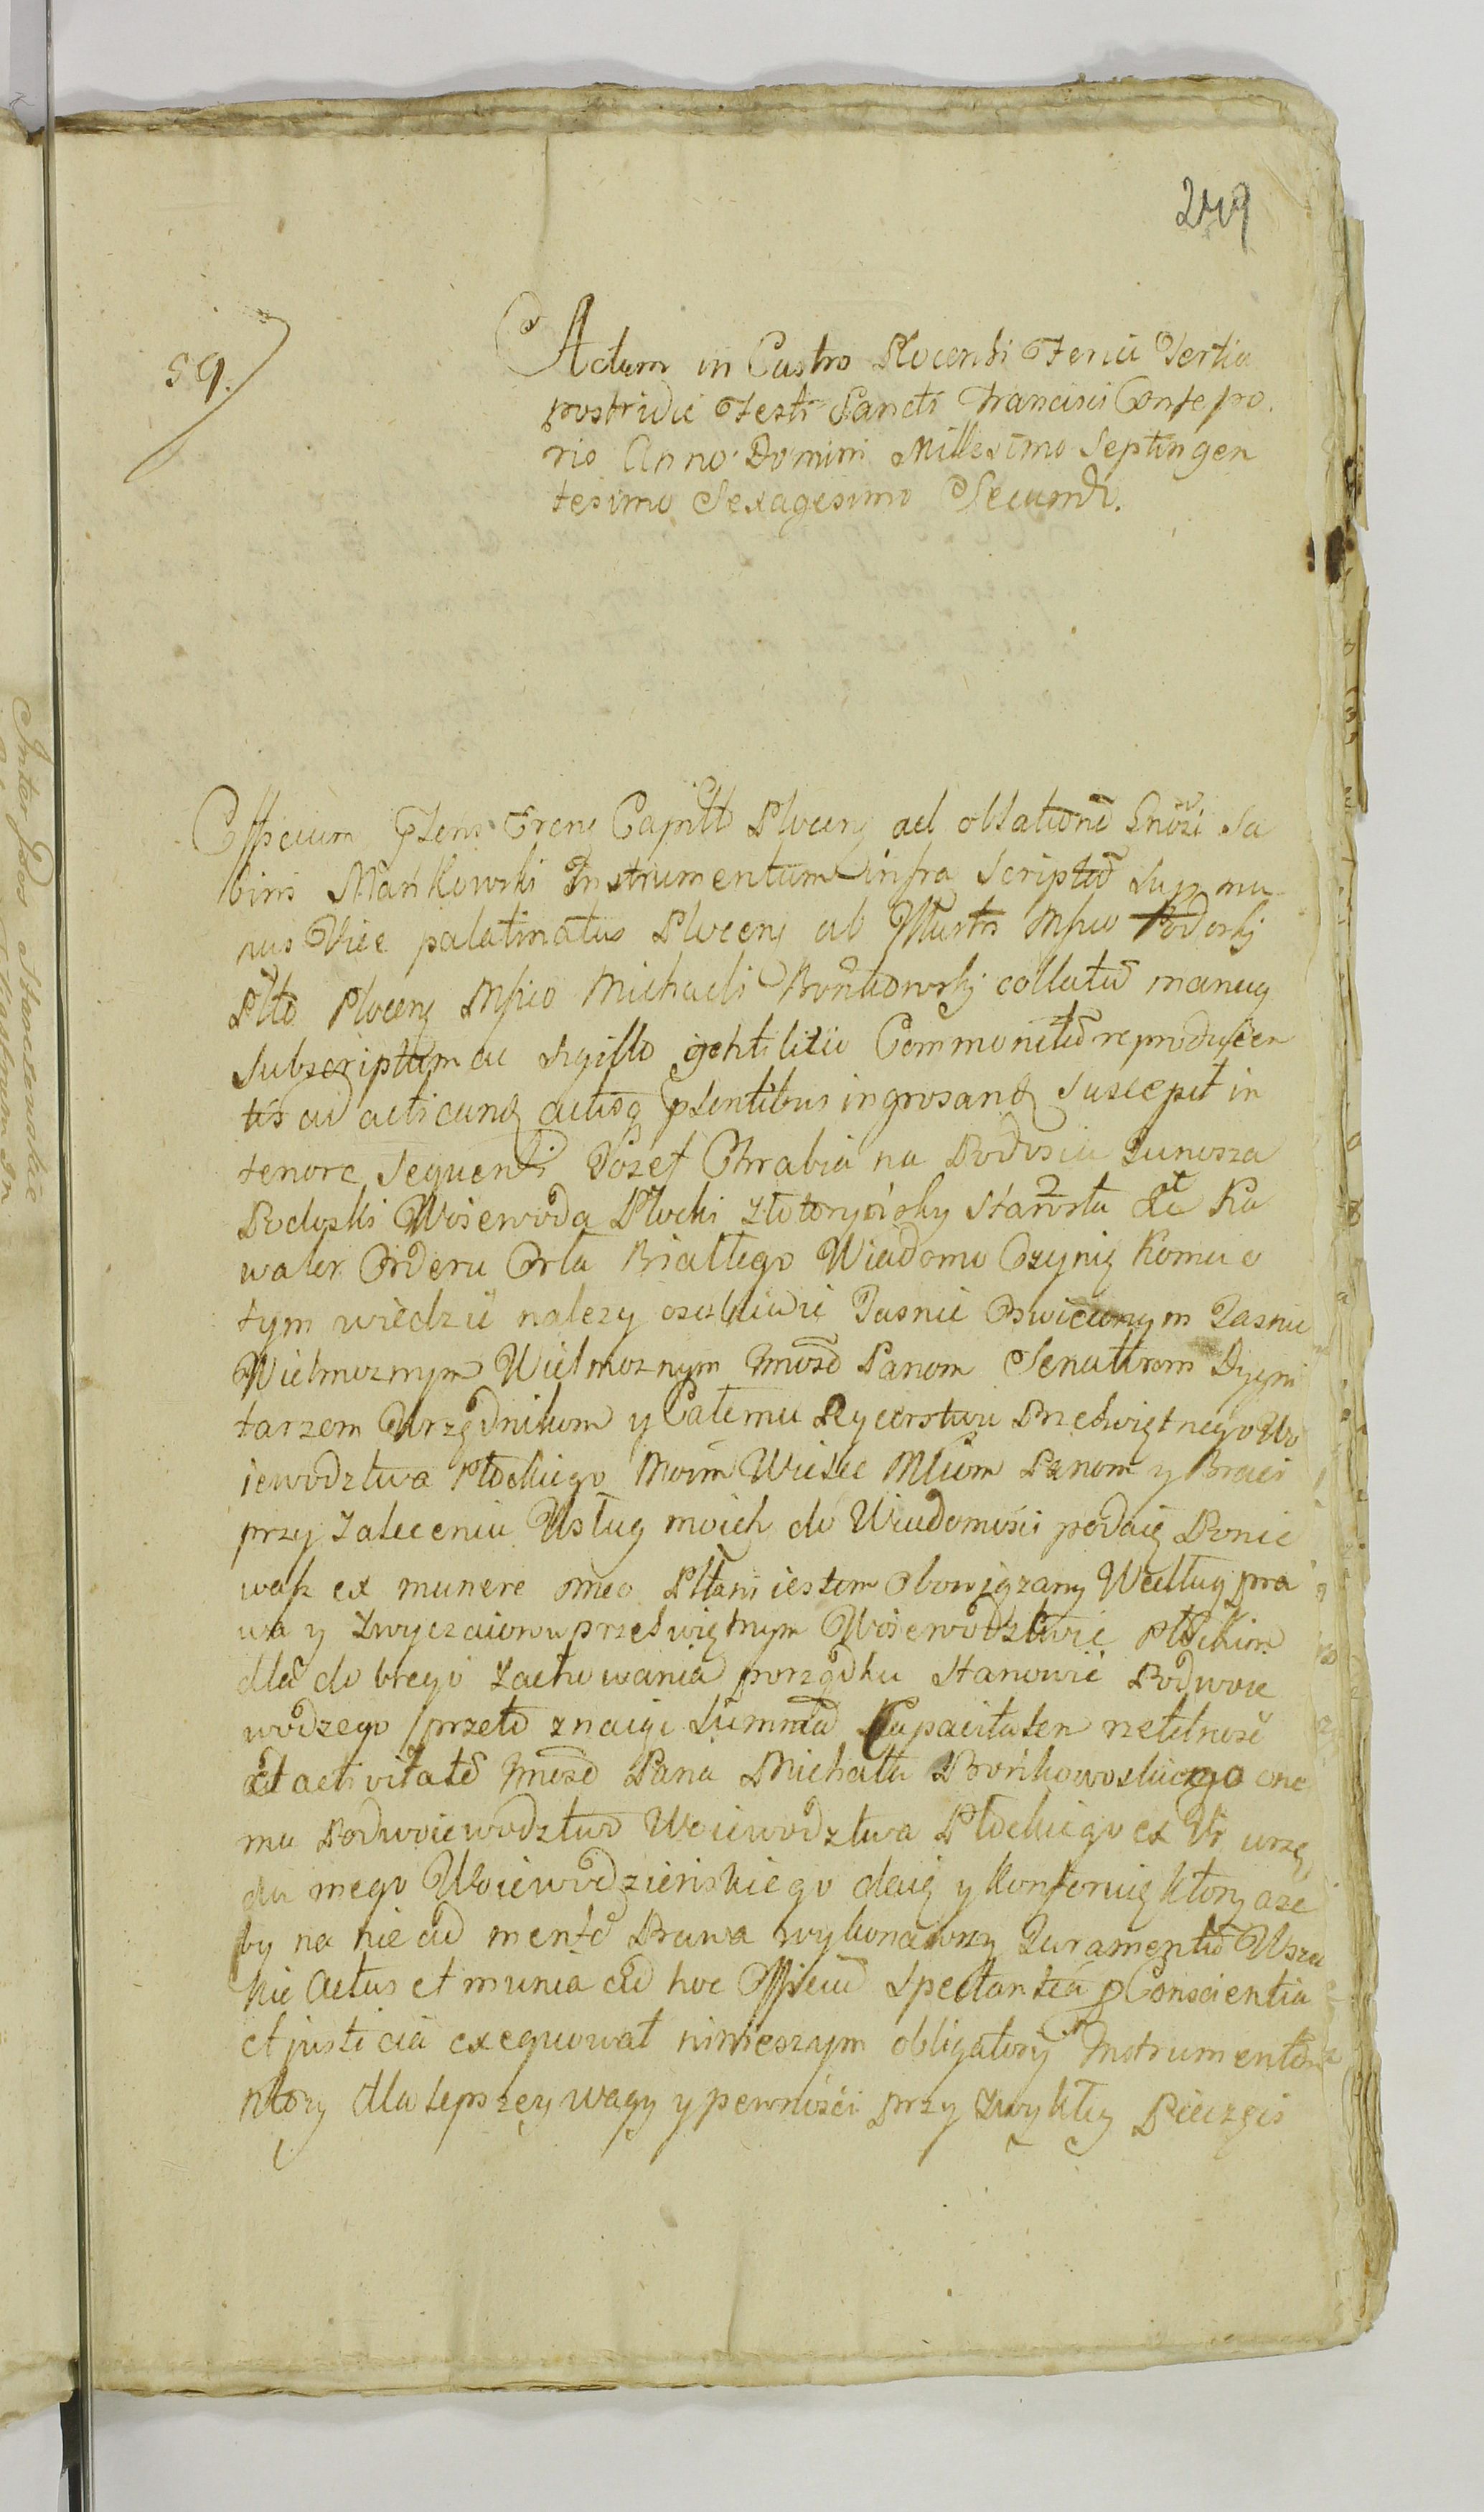 249
59.
Actum in Castro Plocensi Feria Tertia
postridie Festi Sancti Francisci Confesso
ris Anno Domini Millesimo Septingen
tesimo Sexagesimo Secundo.
Officium Psens Crense Capitle Plocens ad oblatione Gnosi Sa
bini Mańkowski Instrumentum infra Scriptu Sup mu
nus Vice palatinatus Plocens ab Illustri Mfico Podoskj
Pltto Plocens Mfico Michaeli Bońkowskj collatu manuq
Subscriptum ac Sigillo gentilitio Communitu reproducen
tis ad acticand actisq psentibus ingrosand Suscepit in
tenore Sequenti Jozef Chrabia na Podosiu Junosza
Podoski Woiewoda Płocki Złotoryiski Starosta &c Ka
waler Orderu Orła Białłego Wiadomo Czynię komu o
tym wiedzić nalezy osobliwie Jasnie Oswieconym Jasnie
Wielmoznym Wielmoznym Imosc Panom Senatirom Dygni
tarzom Urzędnikom y Całemu Rycerstwu Przeświętnego Wo
iewodztwa Płockiego Moim Wielce Mliwm Panom y Braci
przy Zaleceniu Usług moich do Wiadomości podaię Ponie
waz ex munere meo Plttani iestem Obowiązany Według pra
wa y Zwyczaiow w przeświętnym Woiewodztwie Płockim
dla dobrego Zachowania porządku Stanowić Podwoie
wodzego przeto znaiąc Summa Capacitatem rzetelność
et activitate Imosc Pana Michała Bońkowoskiego one
mu Podwoiewodztwo Woiewodztwa Płockiego ex Vi urzę
du mego Woiewodzieńskiego daię y konferuię ktory aze
by na nie ad mente Prawa wykonawszy Juramentu Wsze
kie Actus et munia ad hoc Officiu Spectantia p Conscientia
et justicia exequował ninieszym obligatory Instrumentem
ktory dla lepszey wagy y pewności przy zwykłey Pieczęci